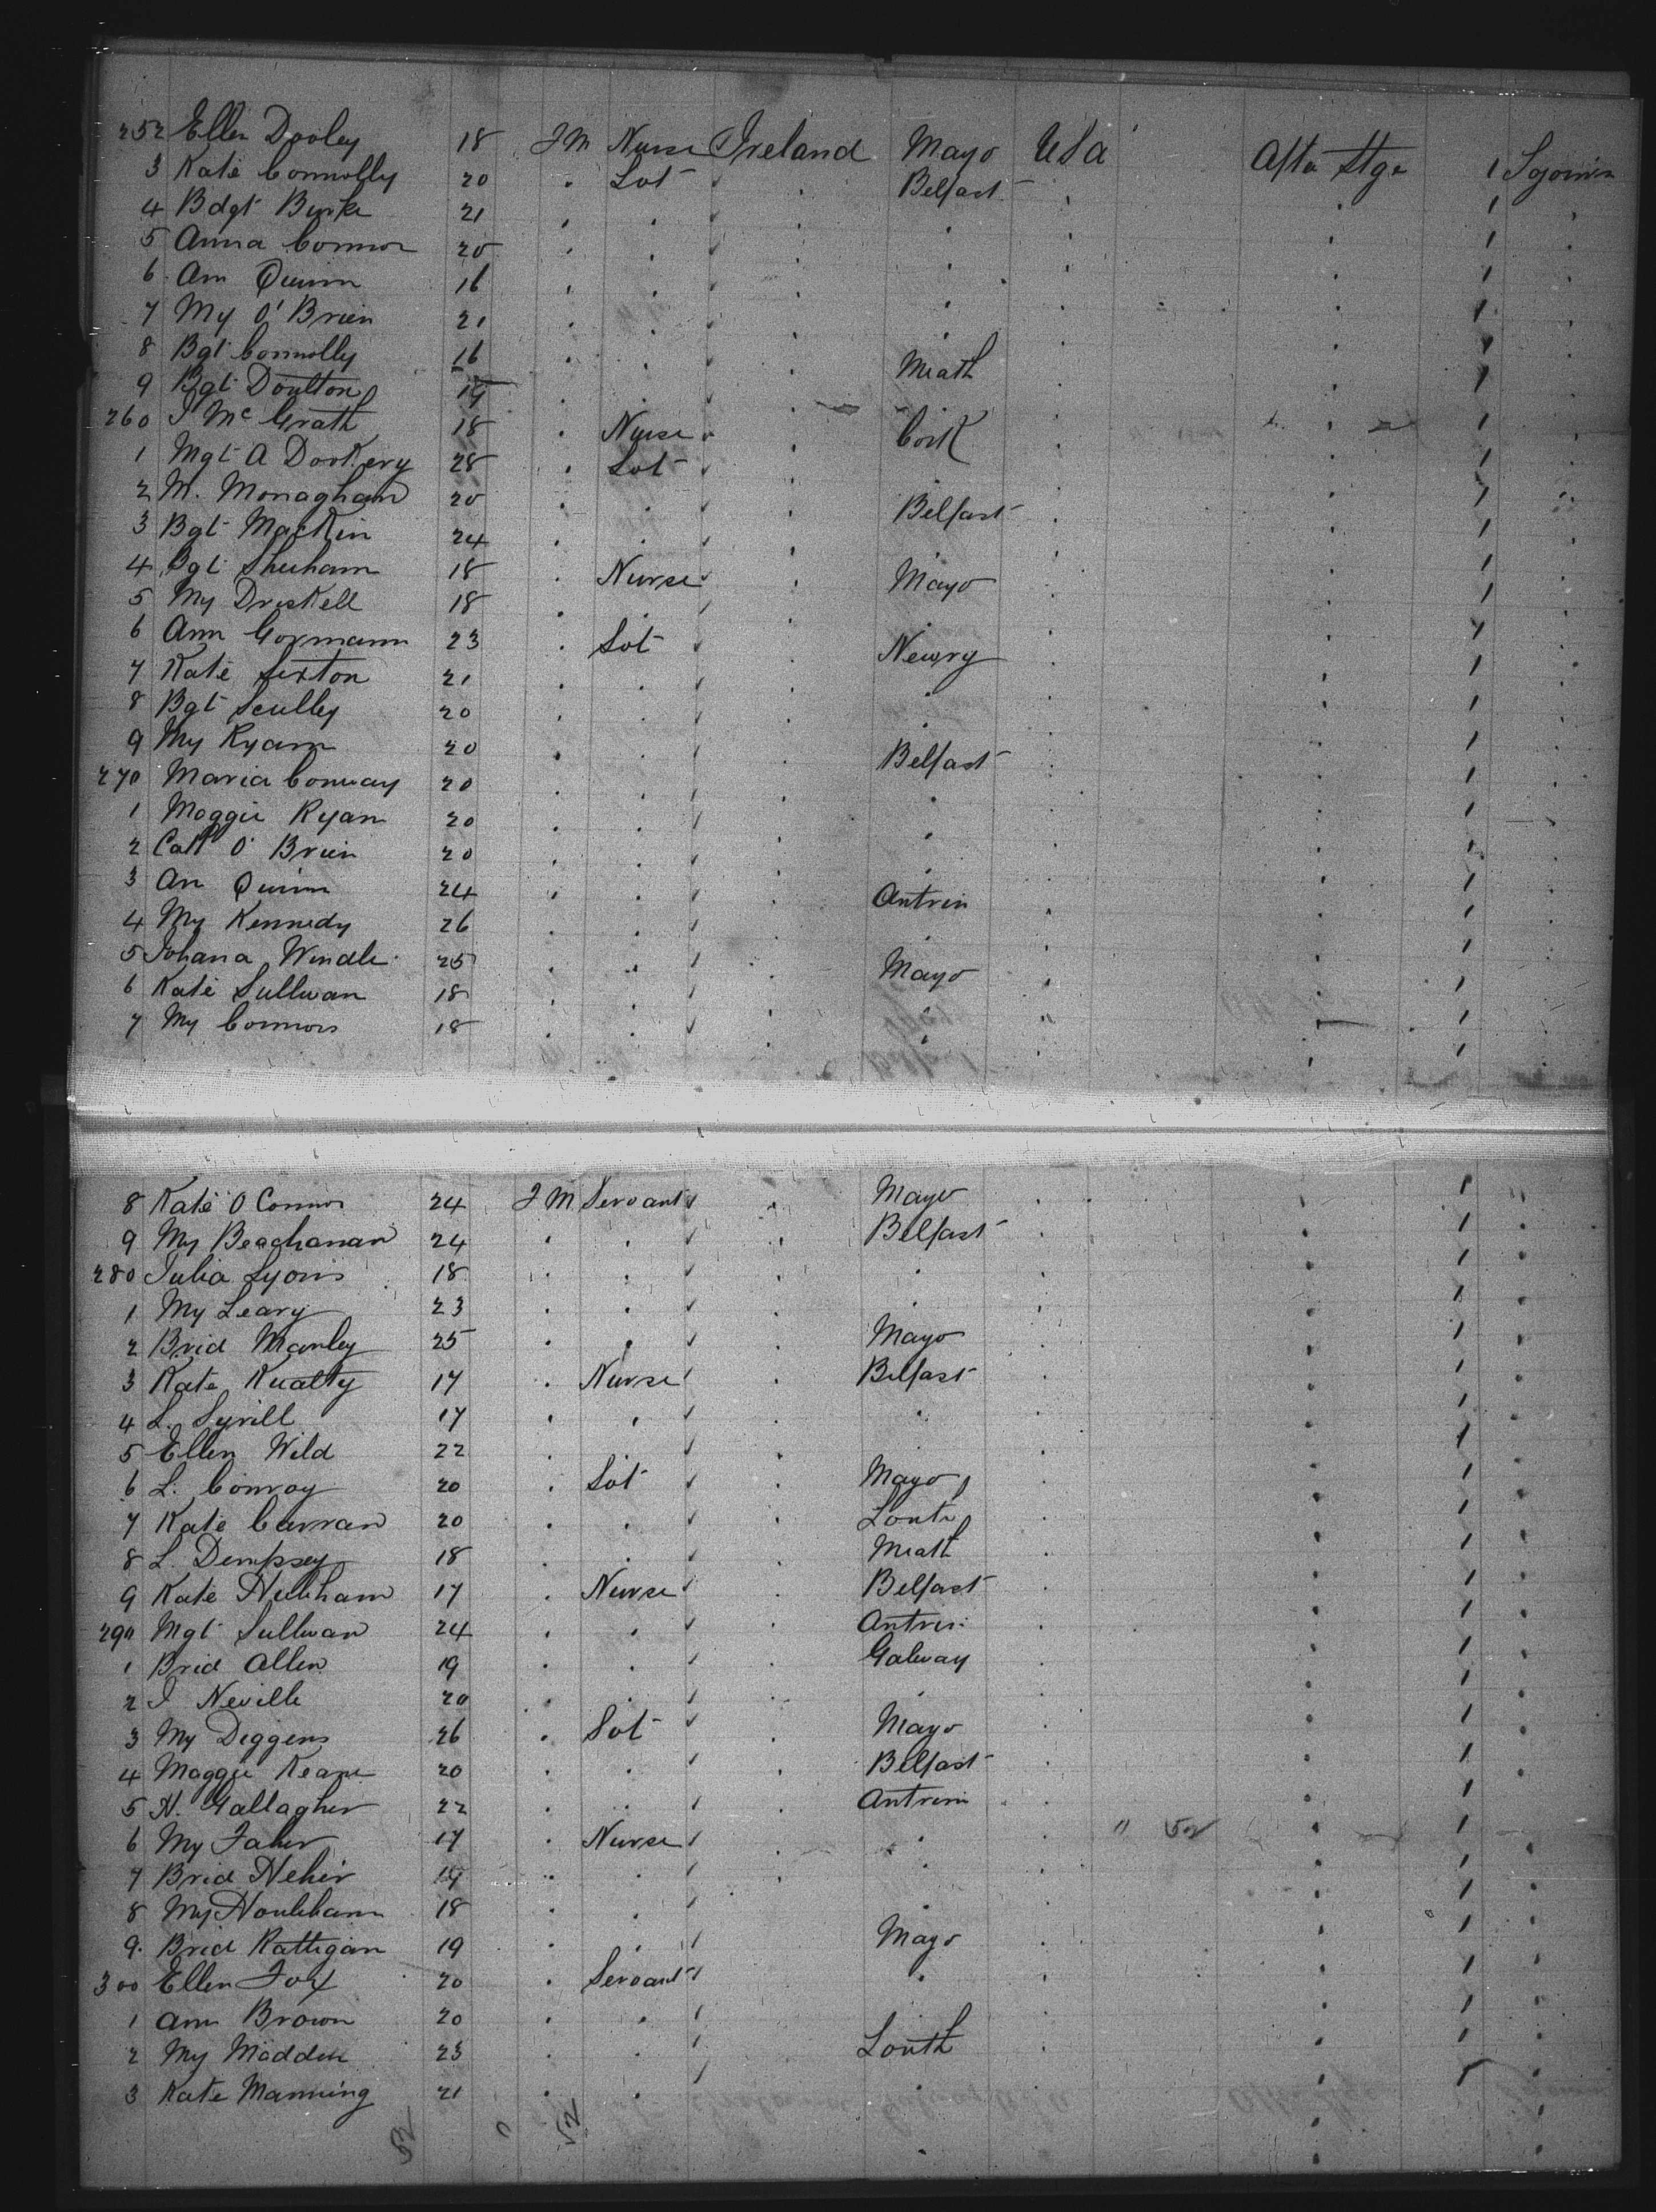 252 Ellen Dooley 18 F M Nurse Ireland Mayo USA Afta Stge 1 Sojourn
3 Kate Connolly 20 . Svt . Belfast
4 Bdgt Burke 21
5 Anna Connor 20
6 Ann Quinn 16
7 My O'Brien 21
8 Bgt Connolly 16 Meath
9 Bgt Doulton 19
260 J McGrath 18 . Nurse Cork
1 Mgt A Dockery 28 . Svt
2 M. Monaghan 20 Belfast
3 Bgt Mackin 24
4 Bgt Sheehan 18 . Nurse Mayo
5 My Driskell 18
6 Ann Gormann 23 . Svt Newry
7 Kate Sexton 21
8 Bgt Sculley 20
9 My Ryan 20 Belfast
270 Maria Conway 20
1 Maggie Ryan 20
2 Cath O'Brien 20
3 An Quinn 24 Antrim
4 My Kennedy 26
5 Johana Windle 25 Mayo
6 Kate Sullivan 18
7 My Connors 18
8 Kate O Connor 24 F M Servant Mayo
9 My Beaghanan 24 Belfast
280 Julia Lyons 18
1 My Leary 23
2 Brid Manley 25 Mayo
3 Kate Kualty 17 . Nurse Belfast
4 L. Syrill 17
5 Ellen Wild 22
6 L. Conroy 20 . Svt Mayo
7 Kate Curran 20 Louth
8 L. Dempsey 18 Meath
9 Kate Hulihan 17 . Nurse Belfast
290 Mgt Sullivan 24 Antrim
1 Brid Allen 19 Galway
2 J Neville 20
3 My Diggens 26 . Svt Mayo
4 Maggie Keane 20 Belfast
5 H. Gallagher 22 Antrim
6 My Faher 17 . Nurse " 52
7 Brid Nehir 19
8 My Houlihan 18
9 Brid Rattigan 19 Mayo
300 Ellen Fox 20 . Servant
1 Ann Brown 20
2 My Madden 23 Louth
3 Kate Manning 21
52 0 52